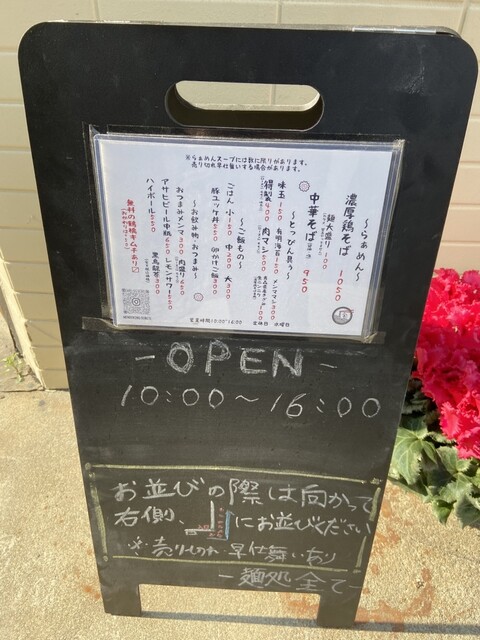 ※らぁめんスープには数に限りがあります。
売り切れ早仕舞いする場合があります。
～らぁめん～
濃厚鶏そば 1050
麺大盛り 100
中華そば 950
～とっぴん具ぅ～
味玉 150 有明海苔 150 メンマ
特製 400 肉マシ 500
定休日 水曜日
～ご飯もの～
ごはん 小 150 中 200 大 300
豚ユッケ丼 500 卵かけご飯 300
～お飲み物・おつまみ～
おつまみメンマ 300 肉盛り
アサヒビール中瓶 レモンサワー 550
ハイボール 550 黒烏龍茶 300
無料の鶴橋キムチあり
営業時間10:00~16:00
-OPEN-
10:00～16:00
お並びの際は向かって
右側、
にお並びください
※売り切れ・早仕舞いあり
-麺処 全て-